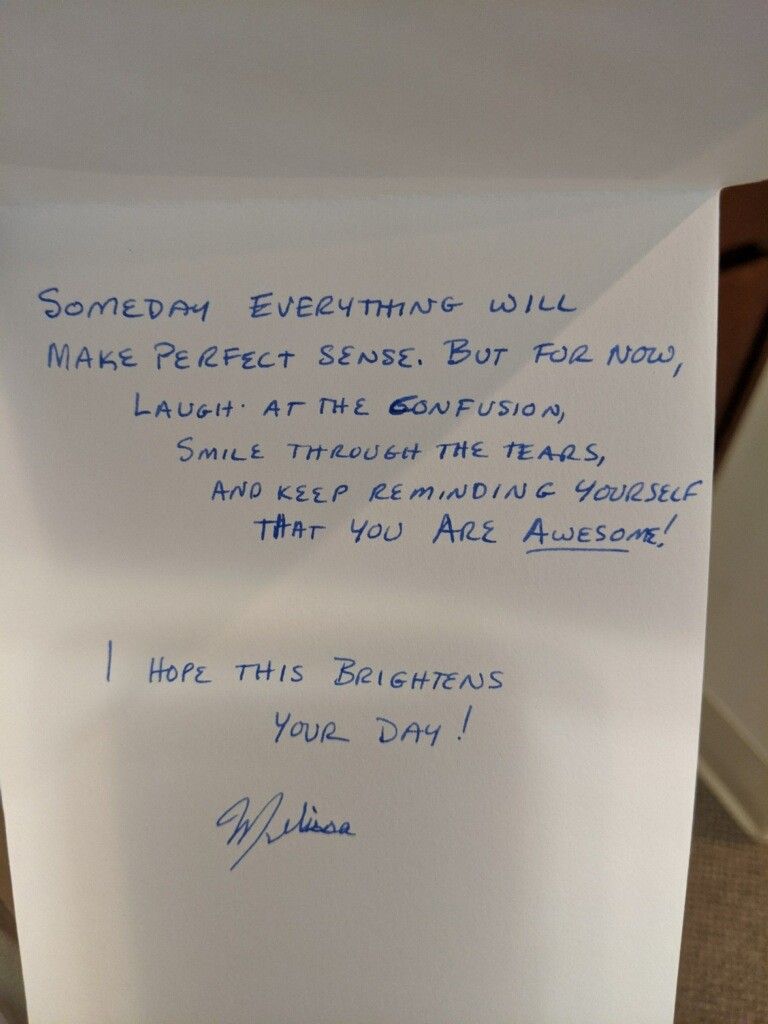 SOMEDAY EVERYTHING WILL
MAKE PERFECT SENSE. BUT FOR NOW,
LAUGH AT THE CONFUSION,
SMILE THROUGH THE TEARS,
AND KEEP REMINDING YOURSELF
THAT YOU ARE AWESOME!
I HOPE THIS BRIGHTENS
YOUR DAY!
Melissa